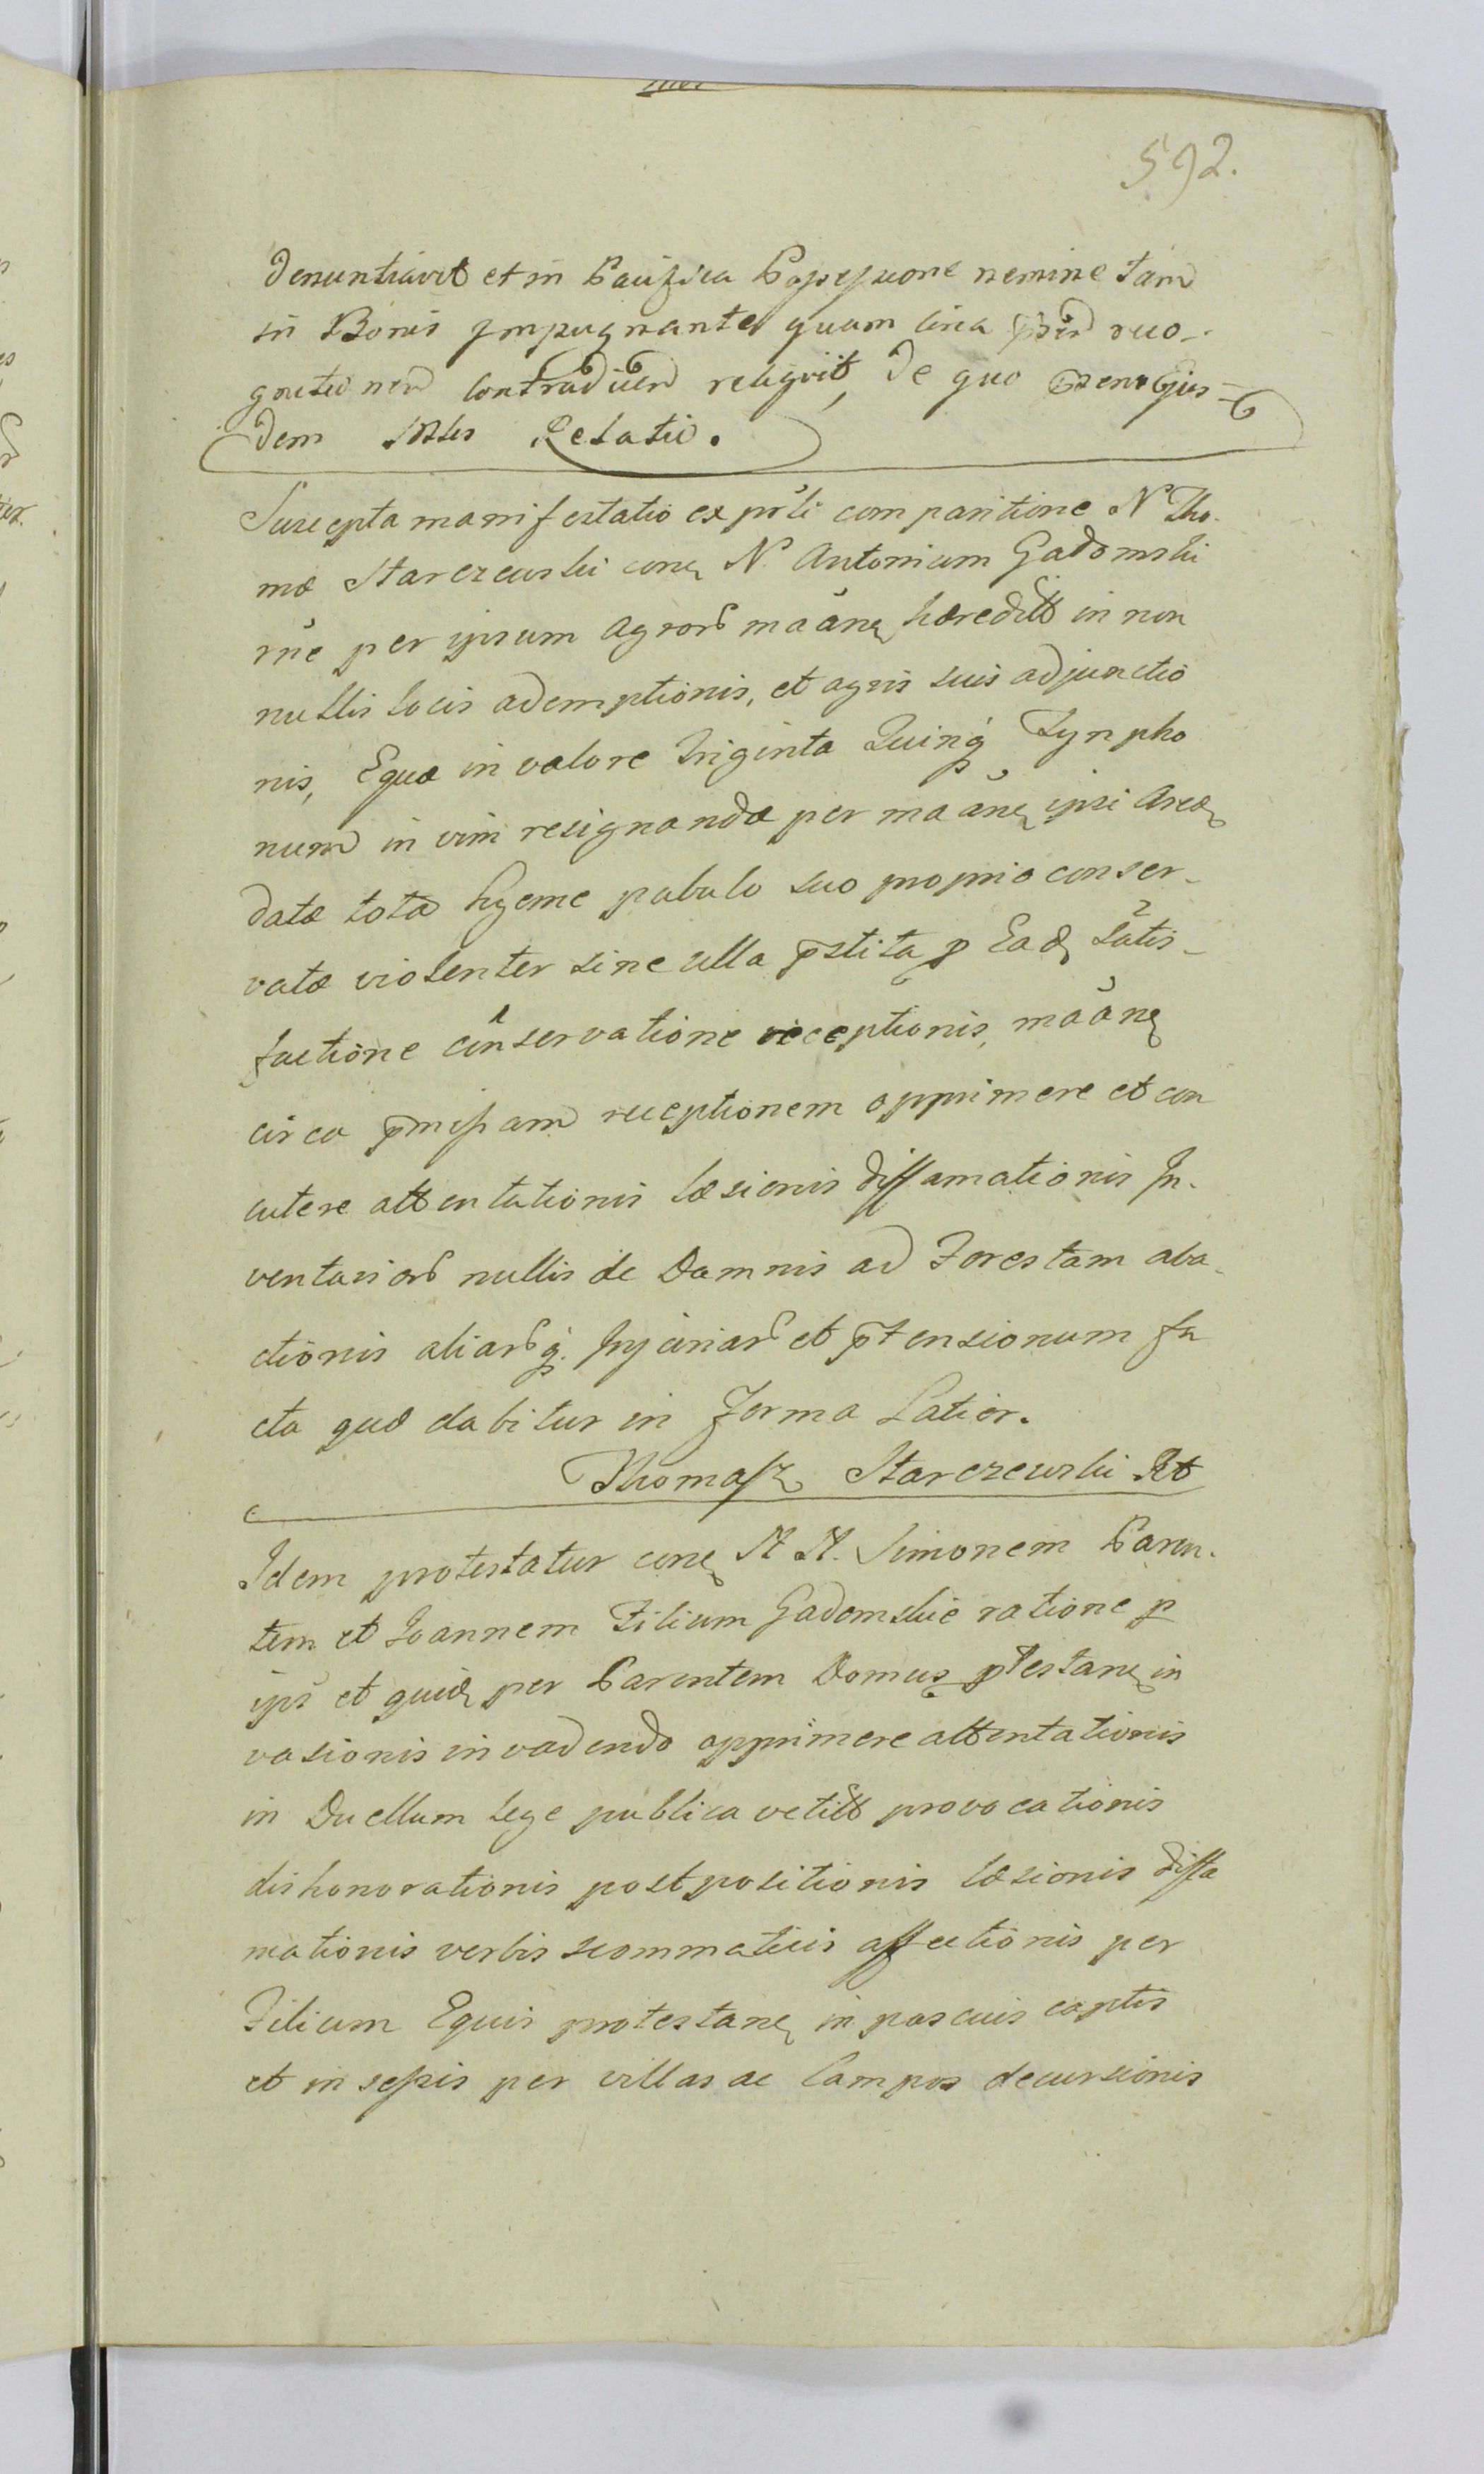 592.
denuntiavit et in Pacifica Possessione nemine tam
in Bonis Impugnante quam circa reco-
gnitionem contradicen reliquit, de quo Ejus-
dem Relatio.
Suscepta manifestatio ex prsti comparitione N Tho-
mæ Starczewski conq N. Antonium Gadomski
rñe per ipsum agrorb maãnq hæreditt in non
nullis locis ademptionis, et agris suis adjunctio
nis, Equæ in valore Triginta Quinq Tynpho
num in vim resignandæ per maãnq ipsi Areæ
datæ tota hyeme pabulo suo proprio conser-
vatæ violenter sine ulla pstita p Ead Satis-
factione conservatione receptionis, maãnq
circa pmissam receptionem opprimere et con
cutere attentationis læsionis diffamationis In-
ventariorb nullis de Damnis ad Forestam aba-
ctionis aliarb q. Injuriarb et ptensionum fa
cta quæ dabitur in forma Latior.
Thomasz Starczewski
Idem protestatur conq N N. Simonem Paren-
tem et Joannem Filium Gadomskie ratione p
ips et quid per Parentem Domus ptestanq in
vasionis invadendo opprimere attentationis
in Duellum lege publica vetitt provocationis
dishonorationis postpositionis læsionis diffa
mationis verbis scommaticis affectionis per
Filium Equis protestanq in pascuis captis
et insessis per villas ac Campos decursionis